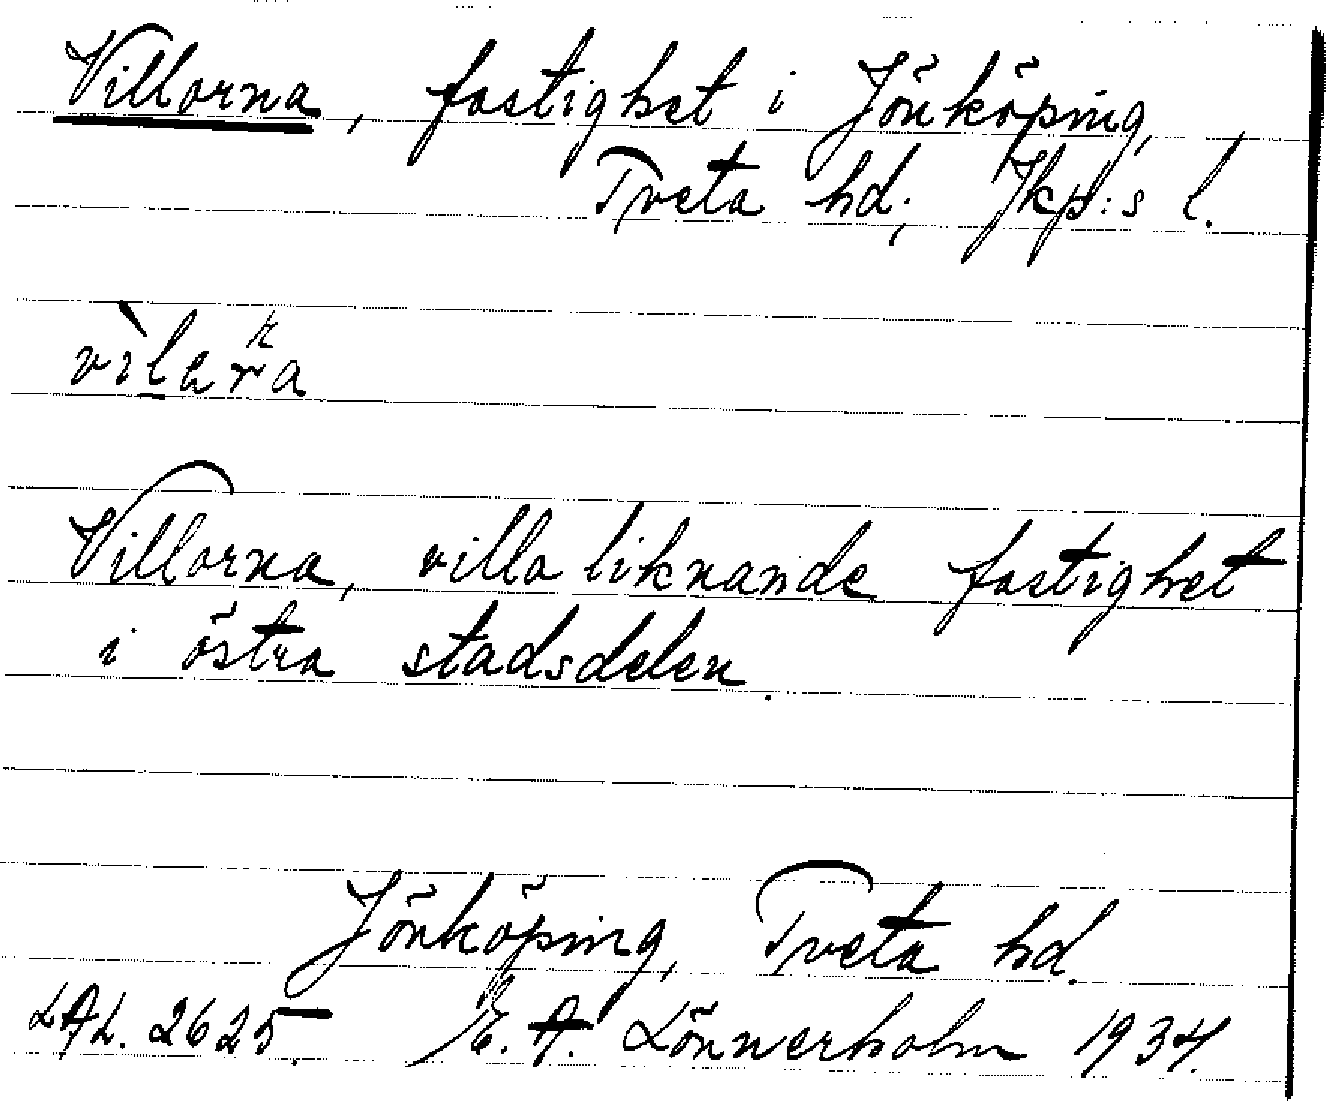 Villorna, fastighet i Jönköping,
Tveta hd; Jkp:s l.
Villorna, villa liknande fastighet
i östra stadsdelen.
Jönköping, Tveta hd.
LAL. 2625. E. A. Lönnerholm 1934.